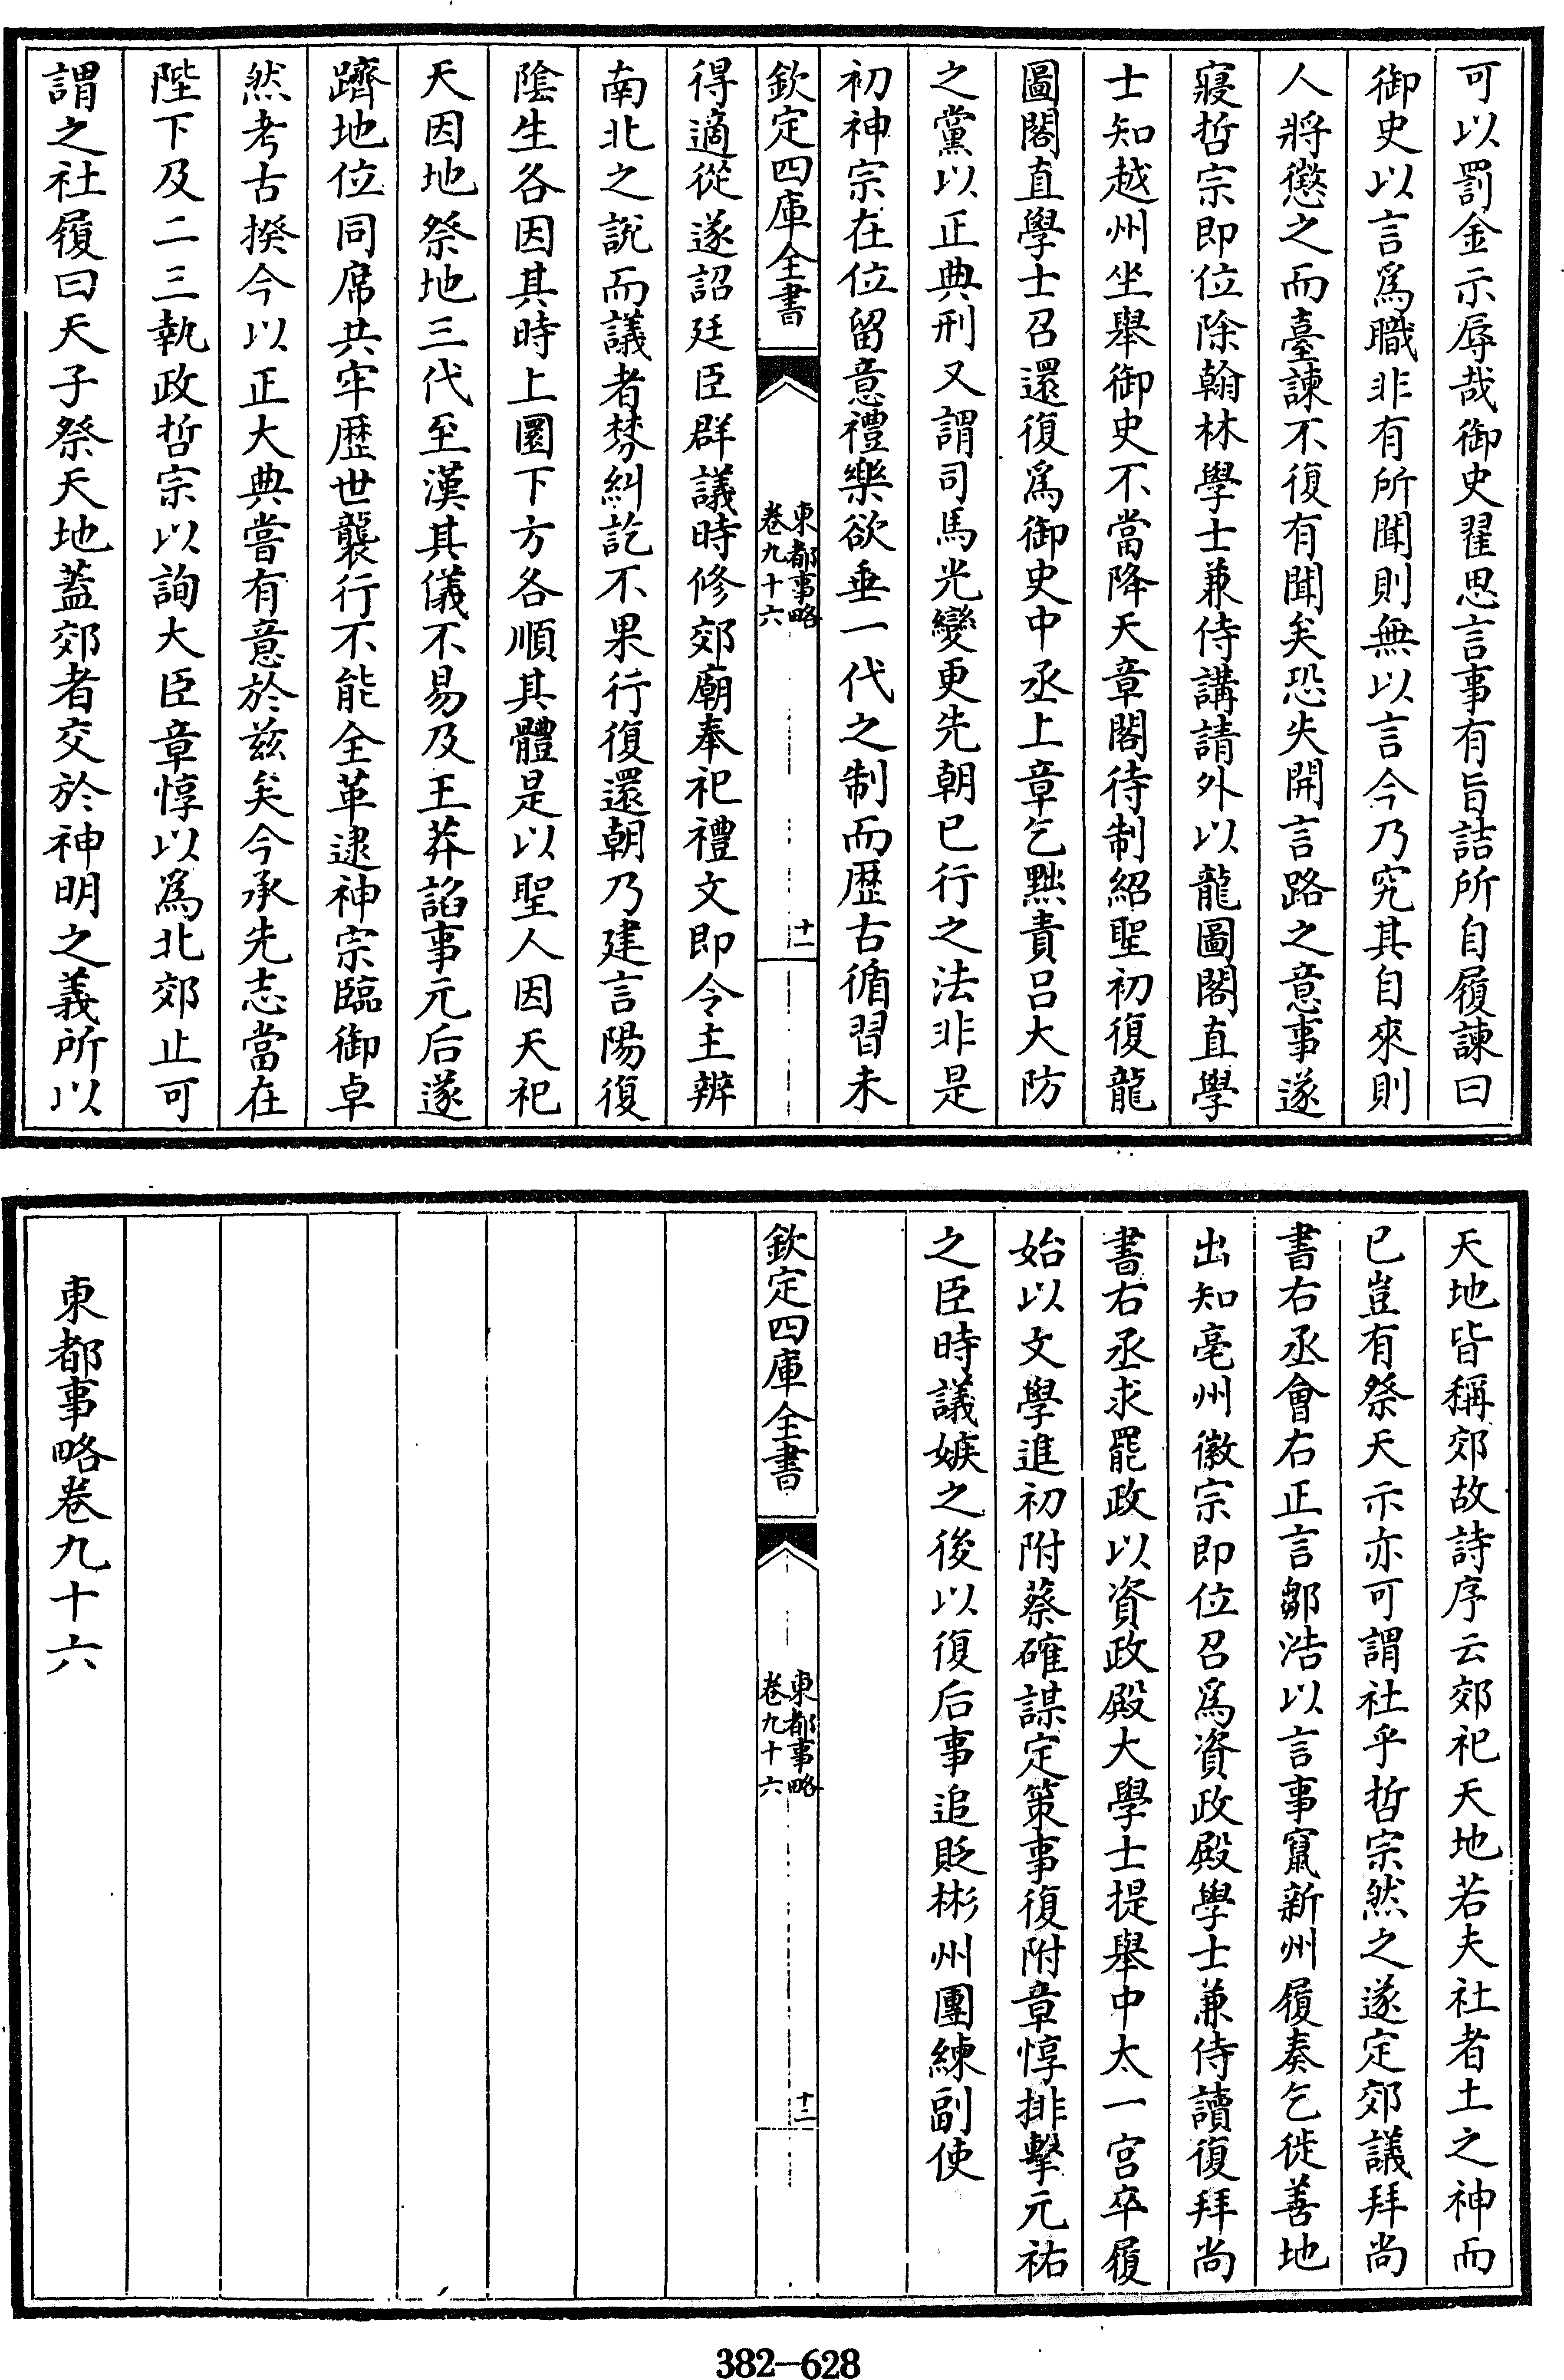 可以罰金示辱哉御史翟思言事有旨詰所自履諫曰
御史以言爲職非有所聞則無以言今乃究其自來則
人將懲之而臺諫不復有聞矣恐失開言路之意事遂
寢哲宗即位除翰林學士兼侍講請外以龍圖閣直學
士知越州坐舉御史不當降天章閣待制紹聖初復龍
圖閣直學士召還復爲御史中丞上章乞黜責呂大防
之黨以正典刑又謂司馬光變更先朝已行之法非是
初神宗在位留意禮樂欲垂一代之制而歴古循習未
欽定四庫全書
東都事略
卷九十六
十一
得適從遂詔廷臣群議時修郊廟奉祀禮文即令主辨
南北之說而議者棼糾訖不果行復還朝乃建言陽復
陰生各因其時上圜下方各順其體是以聖人因天祀
天因地祭地三代至漢其儀不易及王莽諂事元后遂
躋地位同席共牢歴世襲行不能全革逮神宗臨御卓
然考古揆今以正大典嘗有意於兹矣今承先志當在
陛下及二三執政哲宗以詢大臣章惇以爲北郊止可
謂之社履曰天子祭天地蓋郊者交於神明之義所以
天地皆稱郊故詩序云郊祀天地若夫社者土之神而
已豈有祭天示亦可謂社乎哲宗然之遂定郊議拜尚
書右丞會右正言鄒浩以言事竄新州履奏乞徙善地
出知亳州徽宗即位召爲資政殿學士兼侍讀復拜尚
書右丞求罷政以資政殿大學士提舉中太一宮卒履
始以文學進初附蔡確謀定策事復附章惇排擊元祐
之臣時議嫉之後以復后事追貶彬州團練副使
欽定四庫全書
東都事略
卷九十六
十二
東都事略卷九十六
382-628